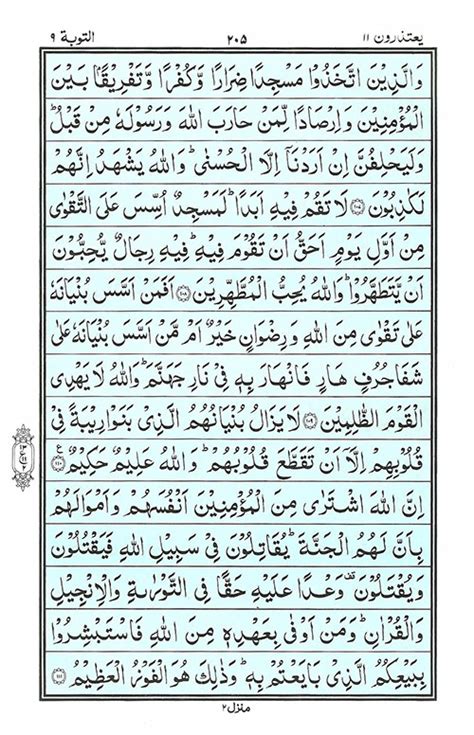 يعتذرون ١١ ٢٠٥ التوبة ٩
وَالَّذِيْنَ اتَّخَذُوْا مَسْجِدًا ضِرَارًا وَّكُفْرًا وَّتَفْرِيْقًۢا بَيْنَ
الْمُؤْمِنِيْنَ وَاِرْصَادًا لِّمَنْ حَارَبَ اللّٰهَ وَرَسُوْلَهٗ مِنْ قَبْلُ ؕ
وَلَيَحْلِفُنَّ اِنْ اَرَدْنَاۤ اِلَّا الْحُسْنٰى ؕ وَاللّٰهُ يَشْهَدُ اِنَّهُمْ
لَكٰذِبُوْنَ ﴿۱۰۷﴾ لَا تَقُمْ فِيْهِ اَبَدًا ؕ لَمَسْجِدٌ اُسِّسَ عَلَى التَّقْوٰى
مِنْ اَوَّلِ يَوْمٍ اَحَقُّ اَنْ تَقُوْمَ فِيْهِ ؕ فِيْهِ رِجَالٌ يُّحِبُّوْنَ
اَنْ يَّتَطَهَّرُوْا ؕ وَاللّٰهُ يُحِبُّ الْمُطَّهِّرِيْنَ ﴿۱۰۸﴾ اَفَمَنْ اَسَّسَ بُنْيَانَهٗ
عَلٰى تَقْوٰى مِنَ اللّٰهِ وَرِضْوَانٍ خَيْرٌ اَمْ مَّنْ اَسَّسَ بُنْيَانَهٗ عَلٰى
شَفَا جُرُفٍ هَارٍ فَانْهَارَ بِهٖ فِيْ نَارِ جَهَنَّمَ ؕ وَاللّٰهُ لَا يَهْدِى
الْقَوْمَ الظّٰلِمِيْنَ ﴿۱۰۹﴾ لَا يَزَالُ بُنْيَانُهُمُ الَّذِيْ بَنَوْا رِيْبَةً فِيْ
قُلُوْبِهِمْ اِلَّاۤ اَنْ تَقَطَّعَ قُلُوْبُهُمْ ؕ وَاللّٰهُ عَلِيْمٌ حَكِيْمٌ ﴿۱۱۰﴾ ع
١٣ ع ١١ ٢
اِنَّ اللّٰهَ اشْتَرٰى مِنَ الْمُؤْمِنِيْنَ اَنْفُسَهُمْ وَاَمْوَالَهُمْ
بِاَنَّ لَهُمُ الْجَنَّةَ ؕ يُقَاتِلُوْنَ فِيْ سَبِيْلِ اللّٰهِ فَيَقْتُلُوْنَ
وَيُقْتَلُوْنَ ۟ وَعْدًا عَلَيْهِ حَقًّا فِى التَّوْرٰىةِ وَالْاِنْجِيْلِ
وَالْقُرْاٰنِ ؕ وَمَنْ اَوْفٰى بِعَهْدِهٖ مِنَ اللّٰهِ فَاسْتَبْشِرُوْا
بِبَيْعِكُمُ الَّذِيْ بَايَعْتُمْ بِهٖ ؕ وَذٰلِكَ هُوَ الْفَوْزُ الْعَظِيْمُ ﴿۱۱۱﴾
منزل ٢